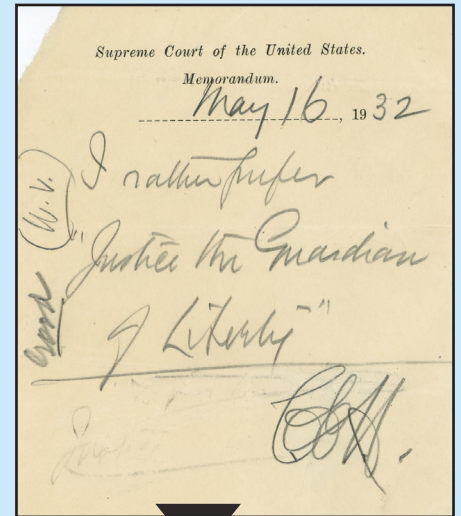 Supreme Court of the United States.
Memorandum.
May 16, 1932
I rather prefer
"Justice the Guardian
of Liberty"
C.E.H.
(W.V.)
Good